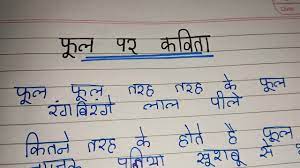 फूल पर कविता
फूल फूल तरह तरह के फूल
रंगबिरंगे लाल पीले
कितने तरह के होते है फूल
पतिया खुशबू से